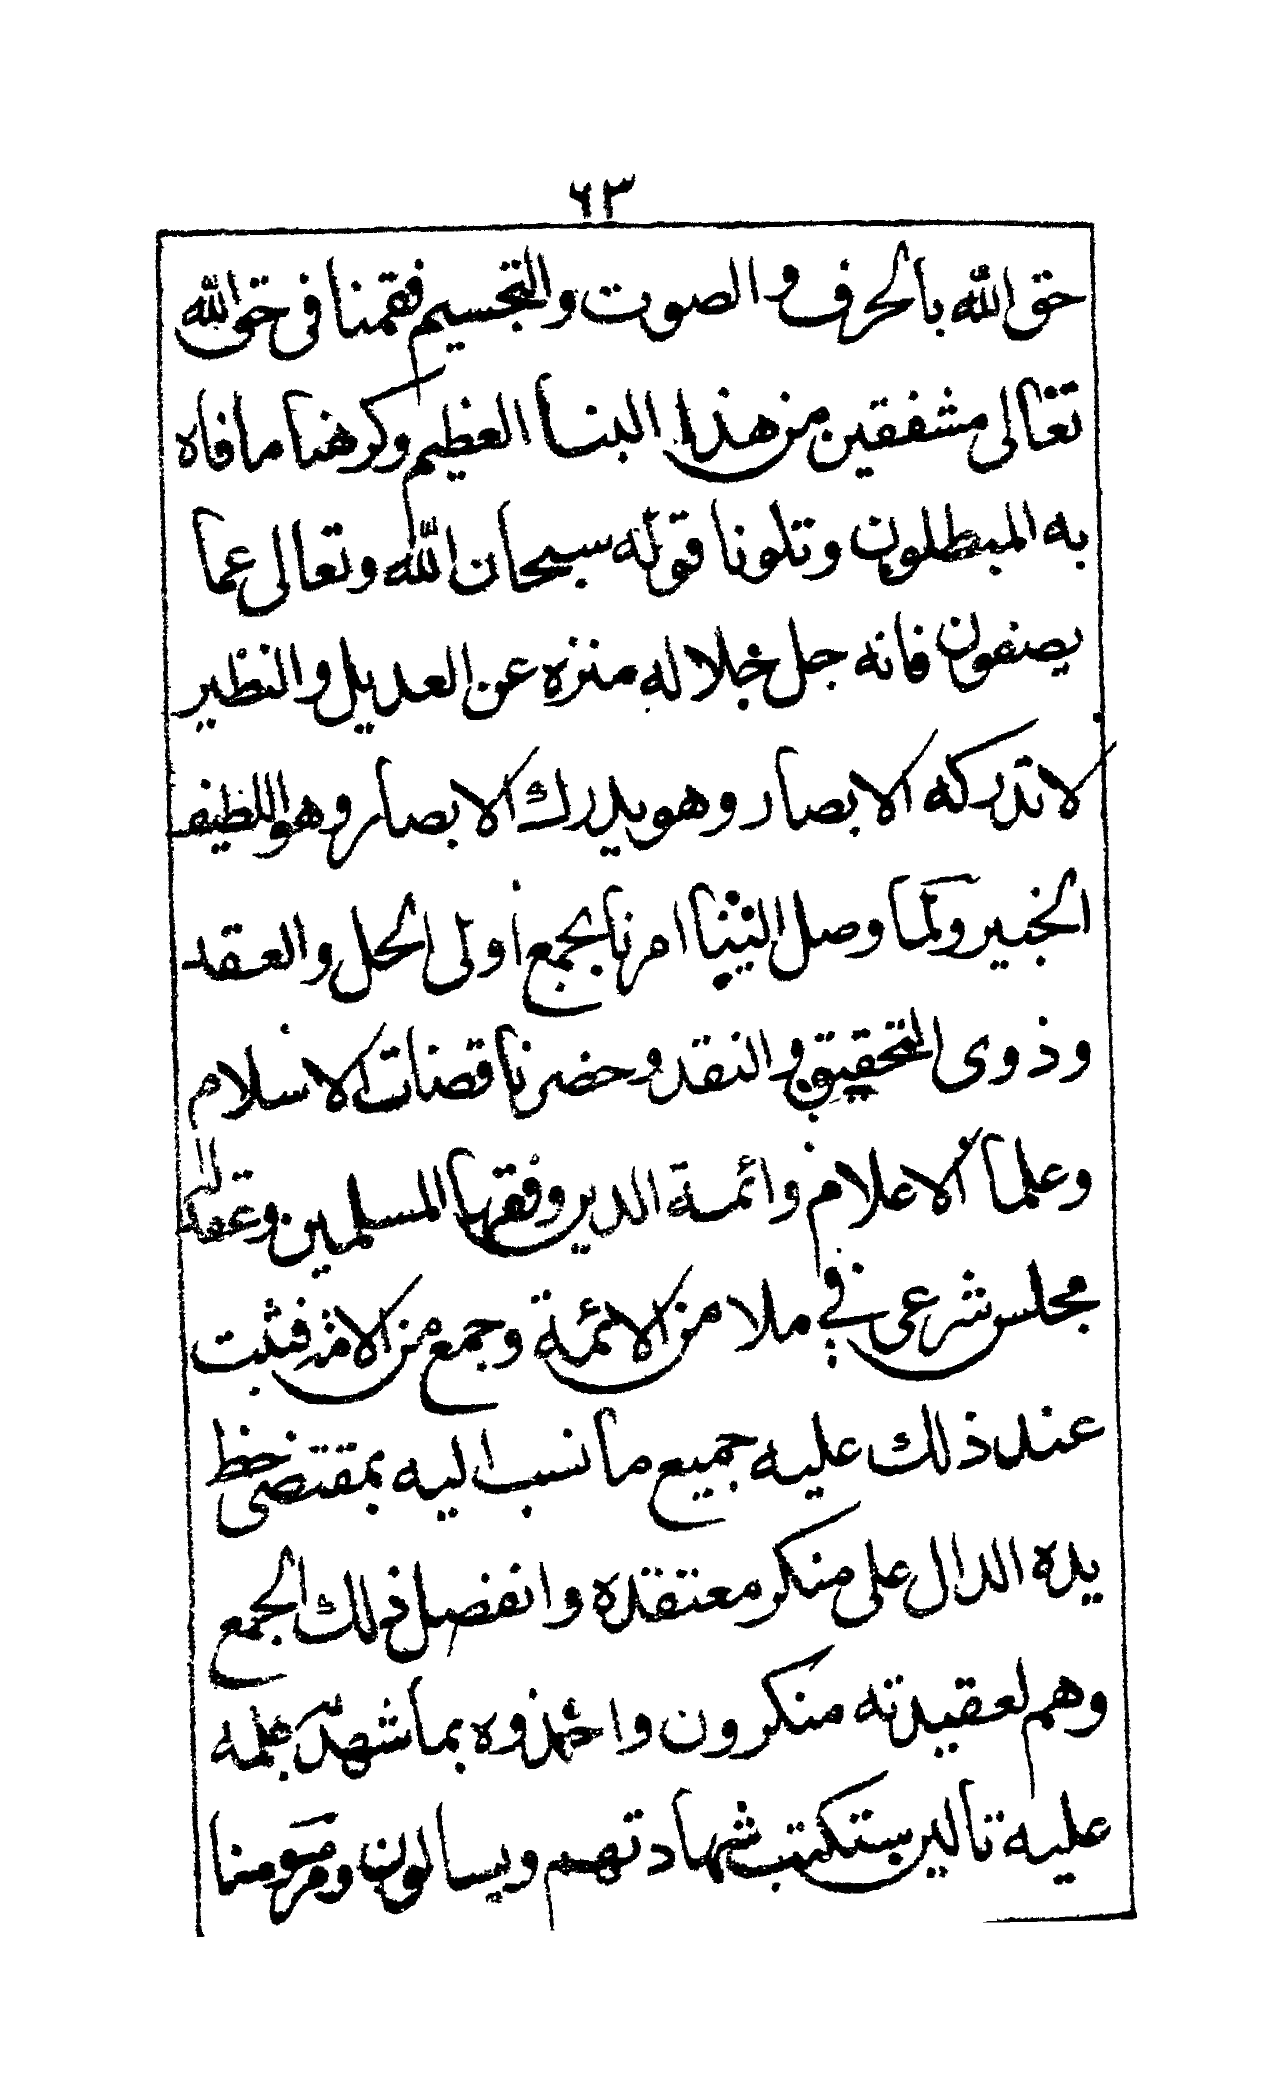 ٦٣
حق الله بالحرف والصوت والتجسيم فقمنا فى حق الله
تعالى مشفقين من هذا النبا العظيم وكرهنا ما فاه
به المبطلون وتلونا قوله سبحان الله وتعالى عما
يصفون فانه جل جلاله منزه عن العديل والنظير
لا تدركه الابصار وهو يدرك الابصار وهو اللطيف
الخبير ولما وصل الينا امرنا بجمع أولى الحل والعقد
وذوى التحقيق والنقد وحضرنا قضات الاسلام
وعلما الاعلام وائمة الدين وفقها المسلمين وعقد له
مجلس شرعى في ملا من الائمة وجمع من الامة فثبت
عند ذلك عليه جميع ما نسب اليه بمقتضى خط
يده الدال على منكر معتقده وانفصل ذلك الجمع
وهم لعقيدته منكرون واخذوه بما شهد علمه
عليه تالين ستكتب شهادتهم ويسالون ومرسومنا